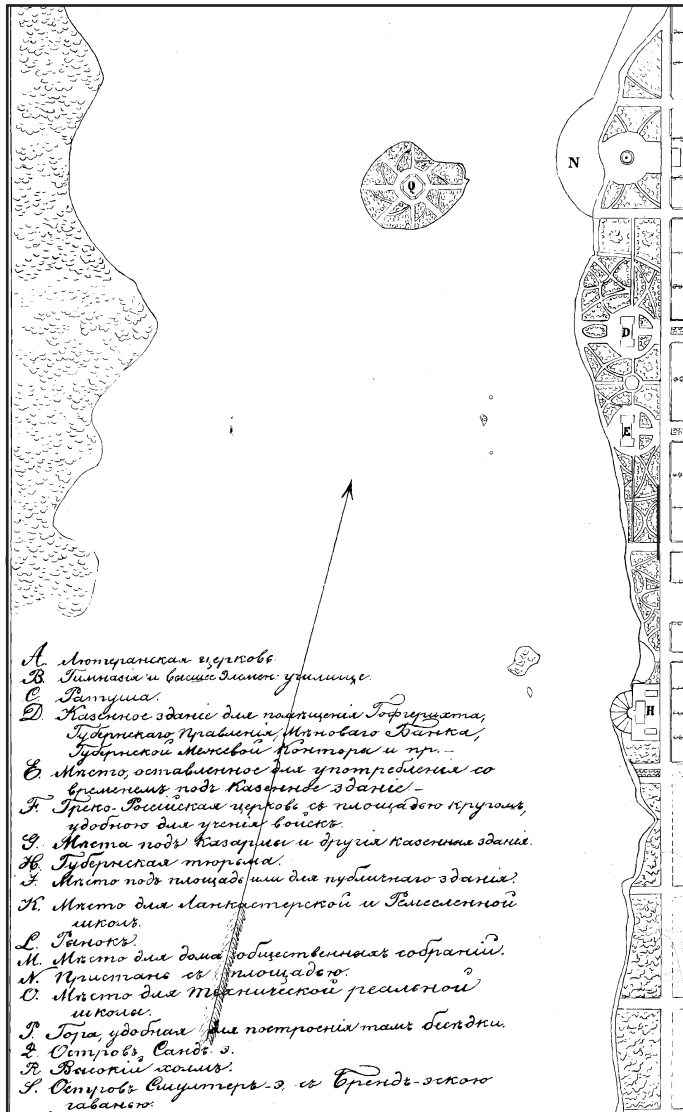 N
Q
D
E
H
А. Лютеранская церковь
В. Гимназія и высшее Элемен. училище.
С. Ратуша.
D. Казенное зданіе для помѣщенія Гофгерихта,
Губернскаго Правленія, Мѣноваго Банка,
Губернской Межевой Конторы и пр. —
Е. Мѣсто, оставленное для употребленія со
временемъ подъ Казенное зданіе —
F. Греко-Россійская церковь съ площадью кругомъ,
удобною для ученія войскъ.
G. Мѣста подъ Казармы и другія казенныя зданія.
H. Губернская тюрьма.
J. Мѣсто подъ площадь или для публичнаго зданія.
К. Мѣсто для Ланкастерской и Ремесленной
школъ.
L. Рынокъ.
М. Мѣсто для дома общественныхъ собраній.
N. Пристань съ площадью.
О. Мѣсто для Технической реальной
школы.
P. Гора, удобная для построенія тамъ бесѣдки.
Q. Островъ Сандъ-э.
R. Высокій холмъ.
S. Островъ Смультеръ-э, съ Брендъ-эскою
гаванью.